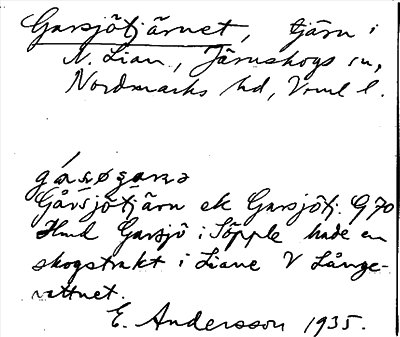 Garsjötjärnet, tjärn i
N. Lian., Järnskogs sn,
Nordmarks hd, Vrml l.
Gårsjötjärn ek Garsjötj. G 70
Hmd Garsjö i Söpple hade en
skogstrakt i Liane V Långe-
vattnet.
E. Andersson 1935.